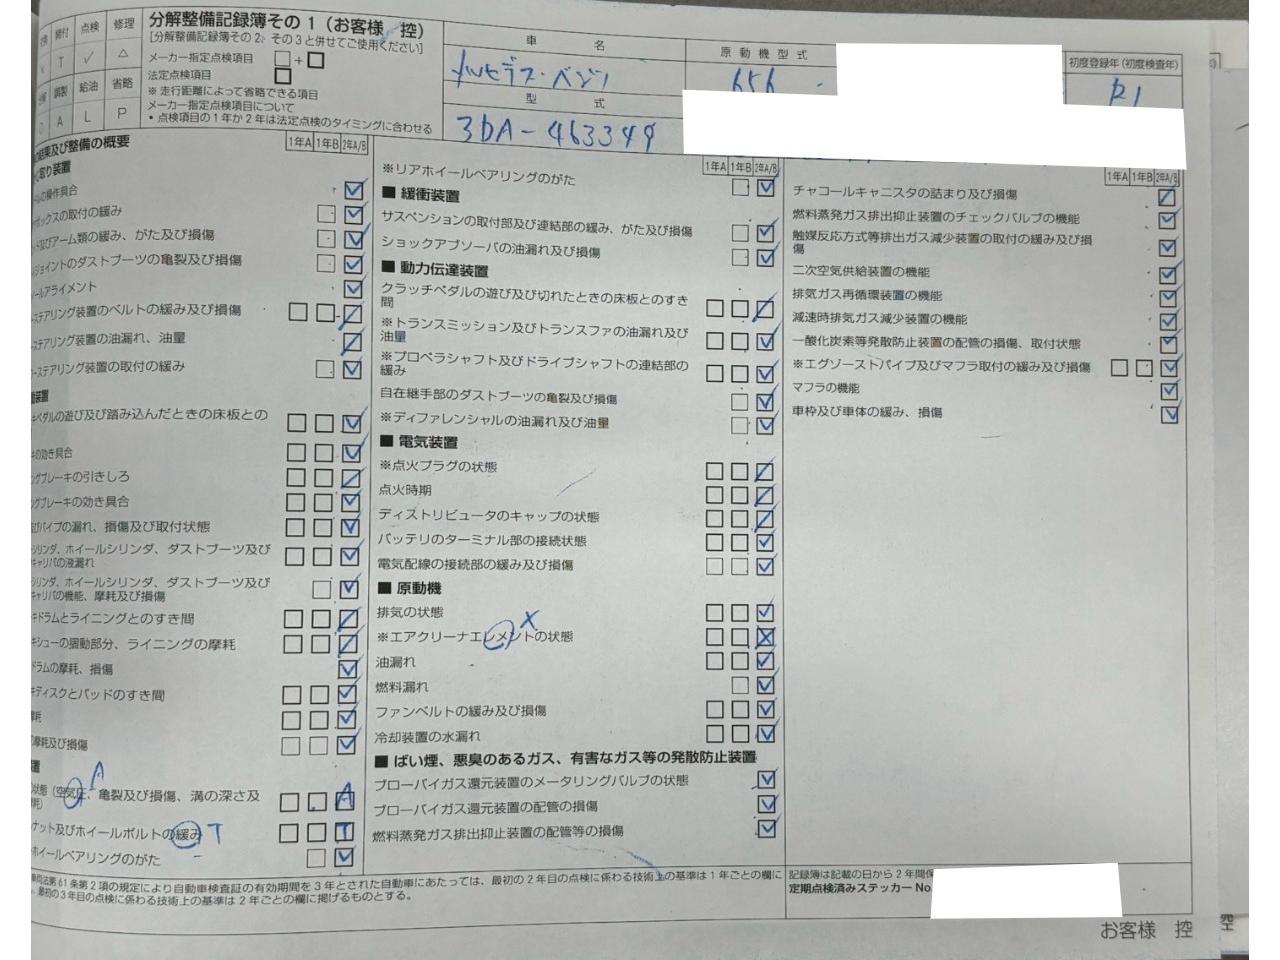 分解整備記録簿その1（お客様 控）
[分解整備記録簿その2、その3と併せてご使用ください]
締付 点検 修理
T ✓ △
調製 給油 省略
A L P
メーカー指定点検項目 □+□
法定点検項目 □
※ 走行距離によって省略できる項目
メーカー指定点検項目について
• 点検項目の1年か2年は法定点検のタイミングに合わせる
車 名
メルセデス・ベンツ
型 式
3DA-463349
原動機型式
656
初度登録年(初度検査年)
R1
結果及び整備の概要
1年A 1年B 2年A/B
取り装置
の操作具合
ボックスの取付の緩み
及びアーム類の緩み、がた及び損傷
ジョイントのダストブーツの亀裂及び損傷
ールアライメント
ーステアリング装置のベルトの緩み及び損傷
ーステアリング装置の油漏れ、油量
ーステアリング装置の取付の緩み
装置
キペダルの遊び及び踏み込んだときの床板との
キの効き具合
ングブレーキの引きしろ
ングブレーキの効き具合
及びパイプの漏れ、損傷及び取付状態
シリンダ、ホイールシリンダ、ダストブーツ及び
キャリパの液漏れ
シリンダ、ホイールシリンダ、ダストブーツ及び
キャリパの機能、摩耗及び損傷
キドラムとライニングとのすき間
キシューの摺動部分、ライニングの摩耗
ドラムの摩耗、損傷
キディスクとパッドのすき間
摩耗
摩耗及び損傷
置
の状態（空気圧、亀裂及び損傷、溝の深さ及 A
A
ナット及びホイールボルトの緩み T
T
ホイールベアリングのがた
1年A 1年B 2年A/B
※リアホイールベアリングのがた
■ 緩衝装置
サスペンションの取付部及び連結部の緩み、がた及び損傷
ショックアブソーバの油漏れ及び損傷
■ 動力伝達装置
クラッチペダルの遊び及び切れたときの床板とのすき
間
※トランスミッション及びトランスファの油漏れ及び
油量
※プロペラシャフト及びドライブシャフトの連結部の
緩み
自在継手部のダストブーツの亀裂及び損傷
※ディファレンシャルの油漏れ及び油量
■ 電気装置
※点火プラグの状態
点火時期
ディストリビュータのキャップの状態
バッテリのターミナル部の接続状態
電気配線の接続部の緩み及び損傷
■ 原動機
排気の状態
※エアクリーナエレメントの状態 X
油漏れ
燃料漏れ
ファンベルトの緩み及び損傷
冷却装置の水漏れ
■ ばい煙、悪臭のあるガス、有害なガス等の発散防止装置
ブローバイガス還元装置のメータリングバルブの状態
ブローバイガス還元装置の配管の損傷
燃料蒸発ガス排出抑止装置の配管等の損傷
1年A 1年B 2年A/B
チャコールキャニスタの詰まり及び損傷
燃料蒸発ガス排出抑止装置のチェックバルブの機能
触媒反応方式等排出ガス減少装置の取付の緩み及び損
傷
二次空気供給装置の機能
排気ガス再循環装置の機能
減速時排気ガス減少装置の機能
一酸化炭素等発散防止装置の配管の損傷、取付状態
※エグゾーストパイプ及びマフラ取付の緩み及び損傷
マフラの機能
車枠及び車体の緩み、損傷
車両法第61条第2項の規定により自動車検査証の有効期間を3年とされた自動車にあたっては、最初の2年目の点検に係わる技術上の基準は1年ごとの欄に
、最初の3年目の点検に係わる技術上の基準は2年ごとの欄に掲げるものとする。
記録簿は記載の日から2年間保
定期点検済みステッカー No.
お客様 控